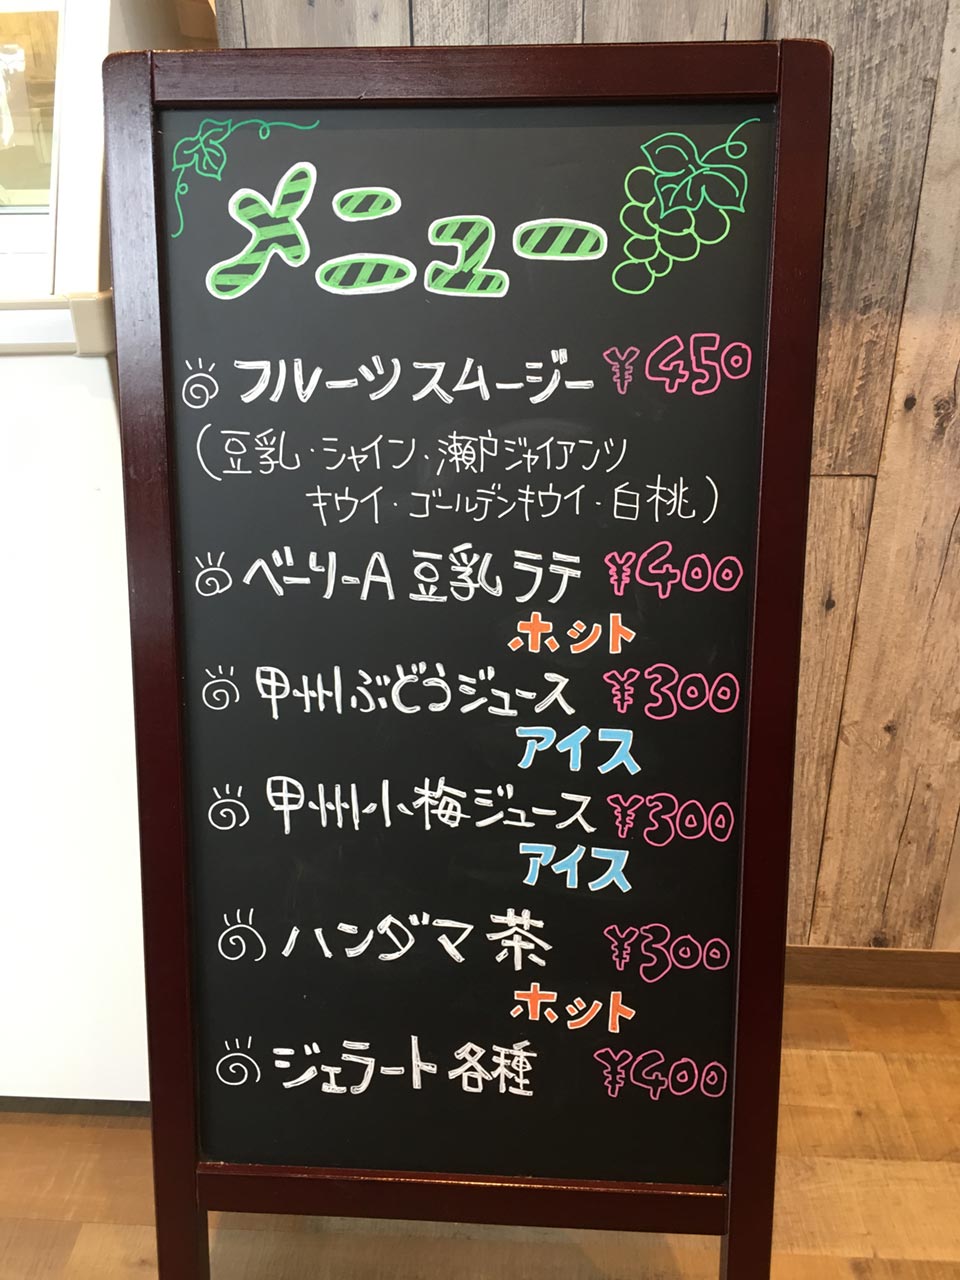 メニュー
フルーツスムージー ¥450
(豆乳・シャイン・瀬戸ジャイアンツ
キウイ・ゴールデンキウイ・白桃)
ベーリーA 豆乳ラテ ¥400
ホット
甲州ぶどうジュース ¥300
アイス
甲州小梅ジュース ¥300
アイス
ハンダマ茶 ¥300
ホット
ジェラート各種 ¥400